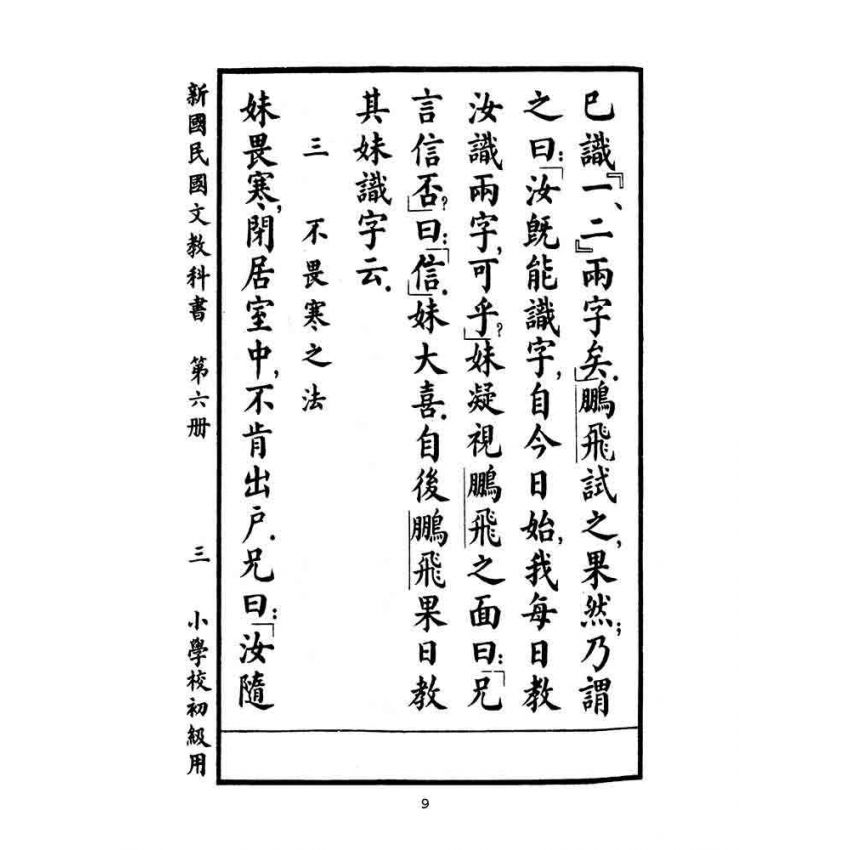 已識『一、二』兩字矣.」鵬飛試之,果然;乃謂
之曰:「汝旣能識字,自今日始,我每日教
汝識兩字,可乎?」妹凝視鵬飛之面曰:「兄
言信否?」曰:「信.」妹大喜.自後鵬飛果日教
其妹識字云.
三 不畏寒之法
妹畏寒,閉居室中,不肯出戶.兄曰:「汝隨
新國民國文教科書 第六册 三 小學校初級用
9